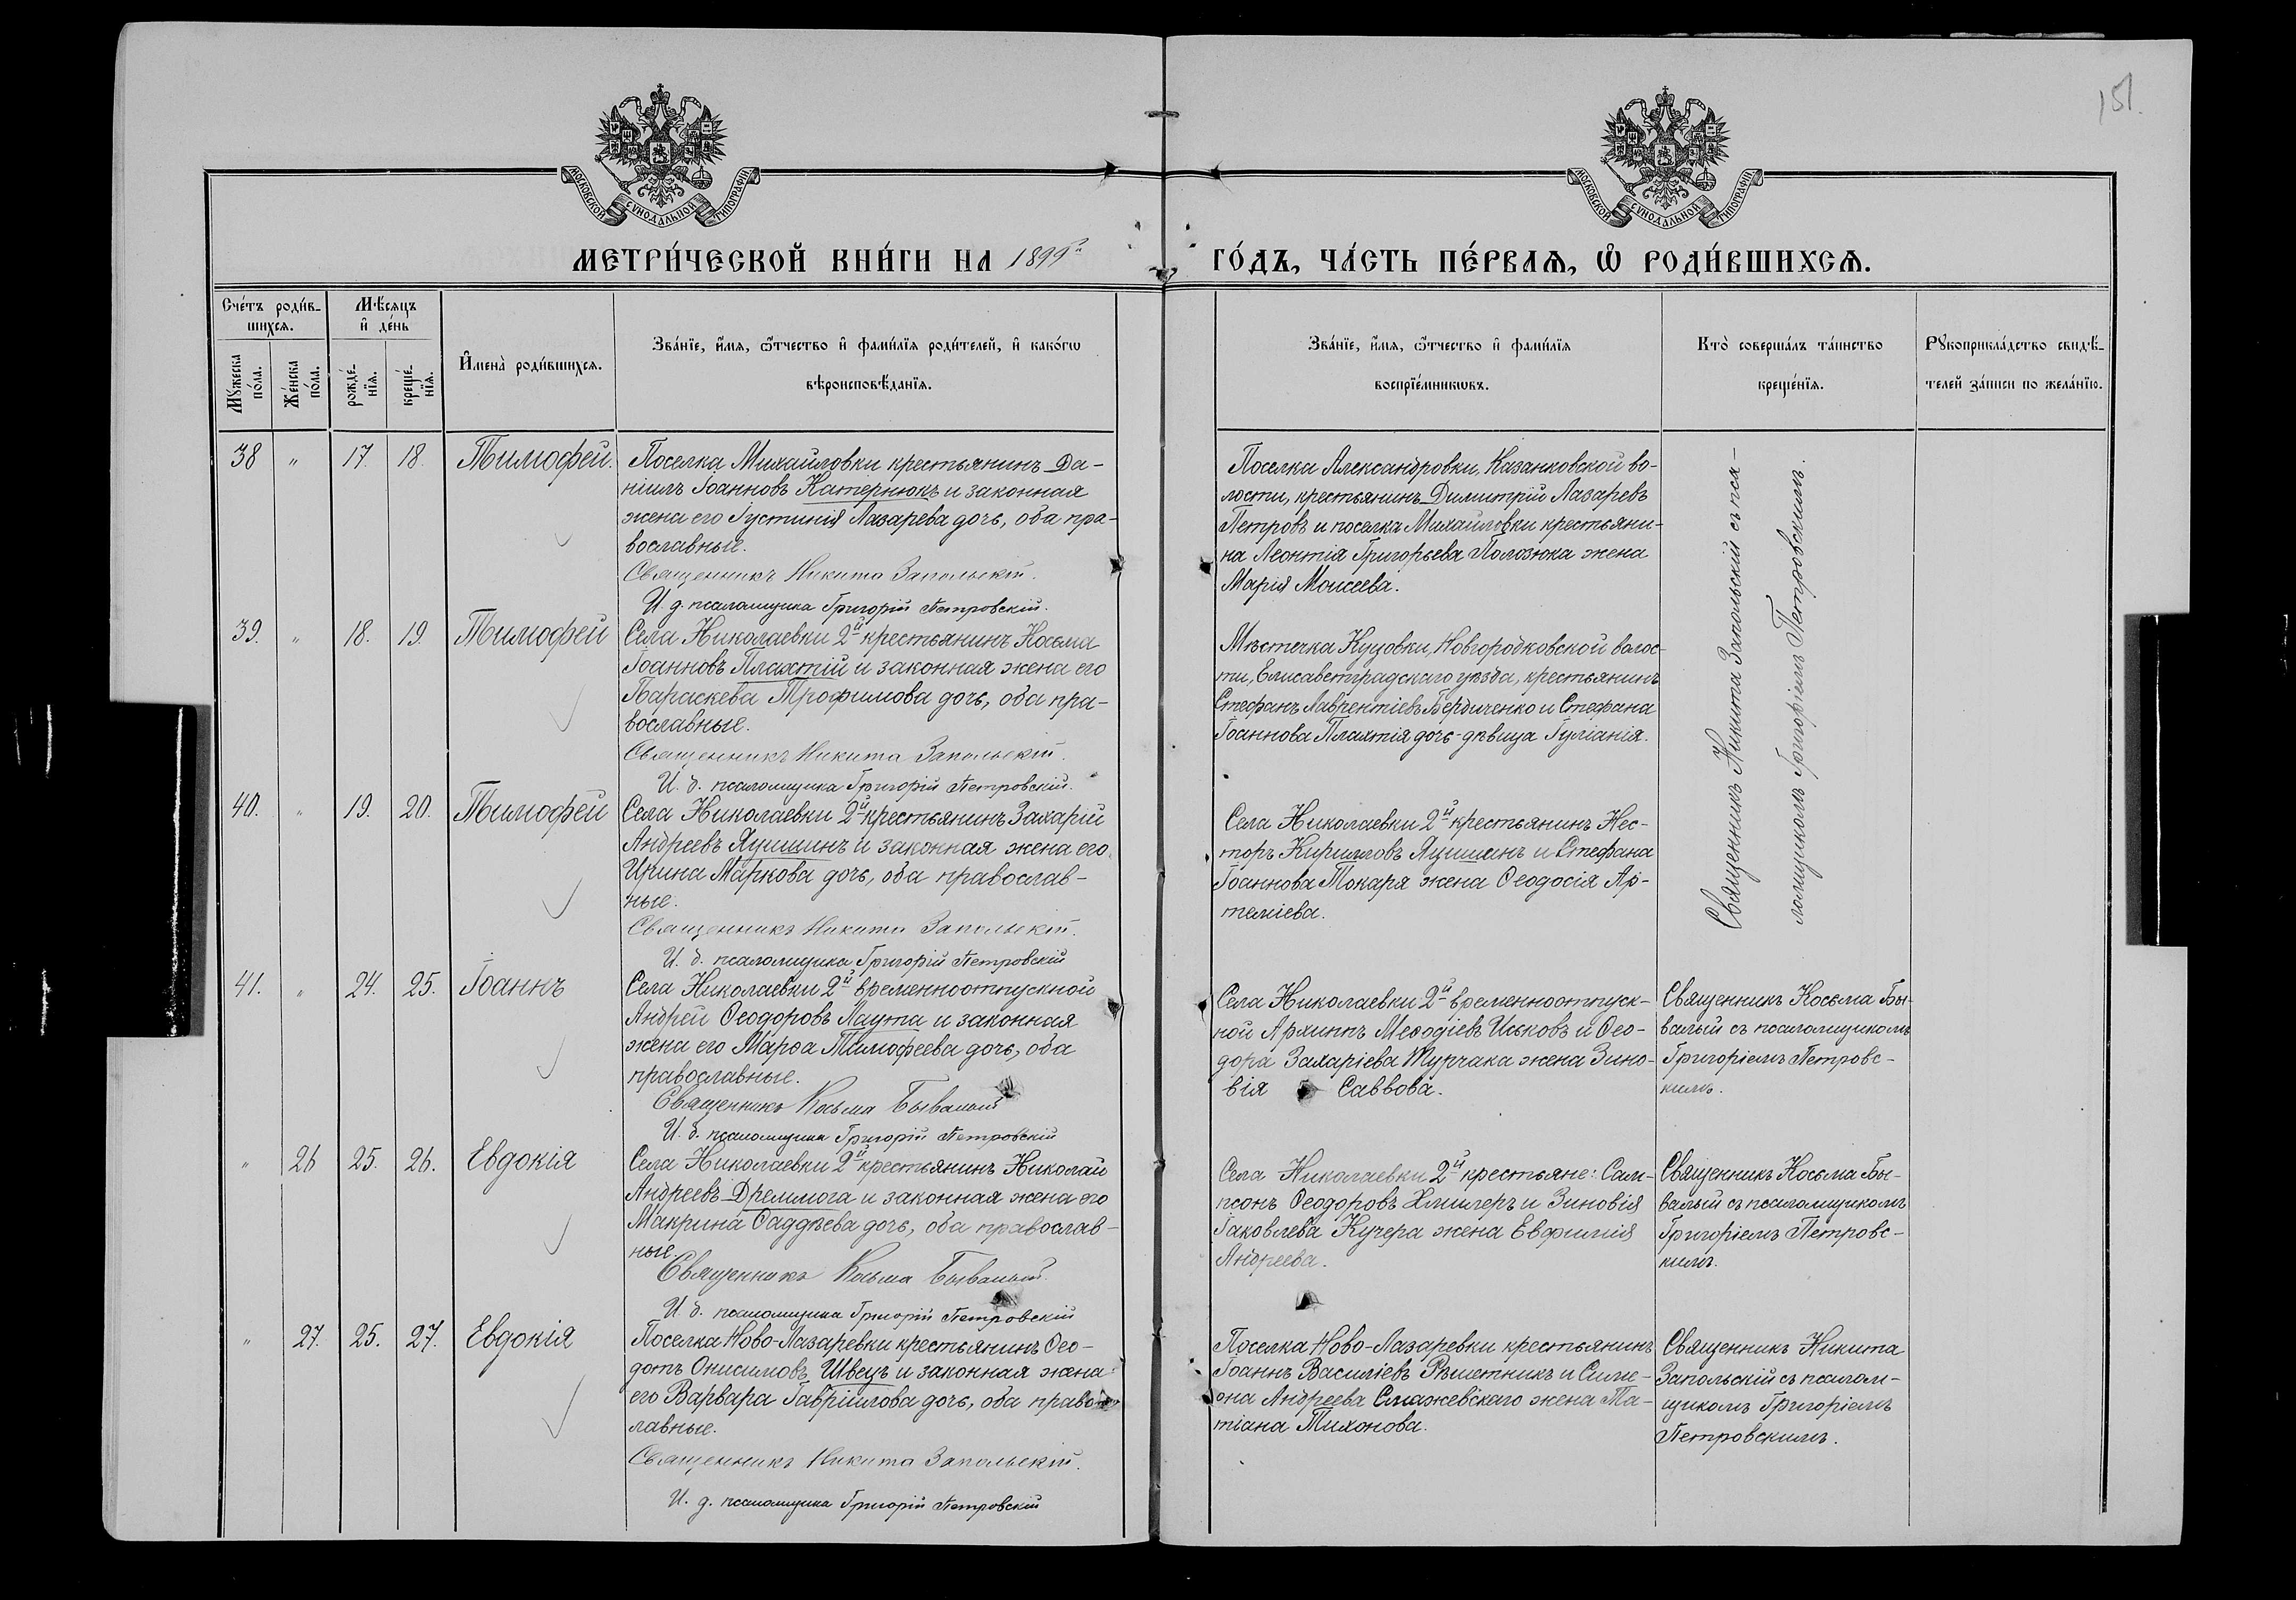 151.
МОСКОВСКОЙ СѴНОДАЛЬНОЙ ТИПОГРАФІИ
МОСКОВСКОЙ СѴНОДАЛЬНОЙ ТИПОГРАФІИ
МЕТРИ́ЧЕСКОЙ КНИ́ГИ НА 1899й
ГО́ДЪ, ЧА́СТЬ ПЕ́РВАѦ, Ѡ РОДИ́ВШИХСѦ.
Сче́тъ роди́в-
шихсѧ.
Мѣ́сяцъ
и҆ де́нь
Мꙋ́жеска
по́ла.
Же́нска
по́ла.
рожде́-
нїѧ.
креще́-
нїѧ.
И҆мена̀ роди́вшихсѧ.
Зва́нїе, и҆́мѧ, ѻ҆́тчество и҆ фами́лїѧ роди́телей, и҆ како́гѡ
вѣроисповѣ́данїѧ.
Зва́нїе, и҆́мѧ, ѻ҆́тчество и҆ фами́лїѧ
воспрїе́мникѡвъ.
Кто̀ соверша́лъ та́инство
креще́нїѧ.
Рꙋкоприкла́дство свидѣ́-
телей за́писи по жела́нїю.
38 " 17. 18. Тимофей.
Поселка Михайловки крестьянинъ Да-
ніилъ Іоанновъ Катернюкъ и законная
жена его Іустинія Лазарева дочь, оба пра-
вославные.
Священникъ Никита Запольскій.
И. д. псаломщика Григорій Петровскій.
Поселка Александровки, Казанковской во-
лости, крестьянинъ Димитрій Лазаревъ
Петровъ и поселка Михайловки крестьяни-
на Леонтія Григорьева Полозюка жена
Марія Моисеева.
Священникъ Никита Запольскій съ пса-
ломщикомъ Григоріемъ Петровскимъ.
39. " 18. 19 Тимофей
Села Николаевки 2й крестьянинъ Косьма
Іоанновъ Плахтій и законная жена его
Параскева Трофимова дочь, оба пра-
вославные.
Священникъ Никита Запольскій.
И. д. псаломщика Григорій Петровскій.
Мѣстечка Куцовки, Новгородковской волос-
ти, Елисаветградскаго уѣзда, крестьянинъ
Стефанъ Лаврентіевъ Бердиченко и Стефана
Іоаннова Плахтія дочь-дѣвица Іуліанія.
40. " 19. 20. Тимофей
Села Николаевки 2й крестьянинъ Захарій
Андреевъ Яцишинъ и законная жена его
Ирина Маркова дочь, оба православ-
ные.
Священникъ Никита Запольскій.
И. д. псаломщика Григорій Петровскій
Села Николаевки 2й крестьянинъ Нес-
торъ Кирилловъ Яцишинъ и Стефана
Іоаннова Токаря жена Ѳеодосія Ар-
теміева.
41. " 24. 25. Іоаннъ
Села Николаевки 2й временноотпускной
Андрей Ѳеодоровъ Лаута и законная
жена его Марѳа Тимофеева дочь, оба
православные.
Священникъ Косьма Бывалый
И. д. псаломщика Григорій Петровскій
Села Николаевки 2й временноотпуск-
ной Архиппъ Меѳодіевъ Иськовъ и Ѳео-
дора Захаріева Турчака жена Зино-
вія Саввова.
Священникъ Косьма Бы-
валый съ псаломщикомъ
Григоріемъ Петровс-
кимъ.
" 26 25. 26. Евдокія
Села Николаевки 2й крестьянинъ Николай
Андреевъ Дремлюга и законная жена его
Макрина Ѳаддѣева дочь, оба православ-
ные.
Священникъ Косьма Бывалый.
И. д. псаломщика Григорій Петровскій
Села Николаевки 2й крестьяне: Сам-
псонъ Ѳеодоровъ Хмилеръ и Зиновія
Іаковлева Кучера жена Евфимія
Андреева.
Священникъ Косьма Бы-
валый съ псаломщикомъ
Григоріемъ Петровс-
кимъ.
" 27. 25. 27. Евдокія
Поселка Ново-Лазаревки крестьянинъ Ѳео-
дотъ Онисимовъ Швецъ и законная жена
его Варвара Гавріилова дочь, оба правос-
лавные.
Священникъ Никита Запольскій.
И. д. псаломщика Григорій Петровскій
Поселка Ново-Лазаревки крестьянинъ
Іоаннъ Василіевъ Рѣшетникъ и Симе-
она Андреева Смажевскаго жена Та-
тіана Тихонова.
Священникъ Никита
Запольскій съ псалом-
щикомъ Григоріемъ
Петровскимъ.